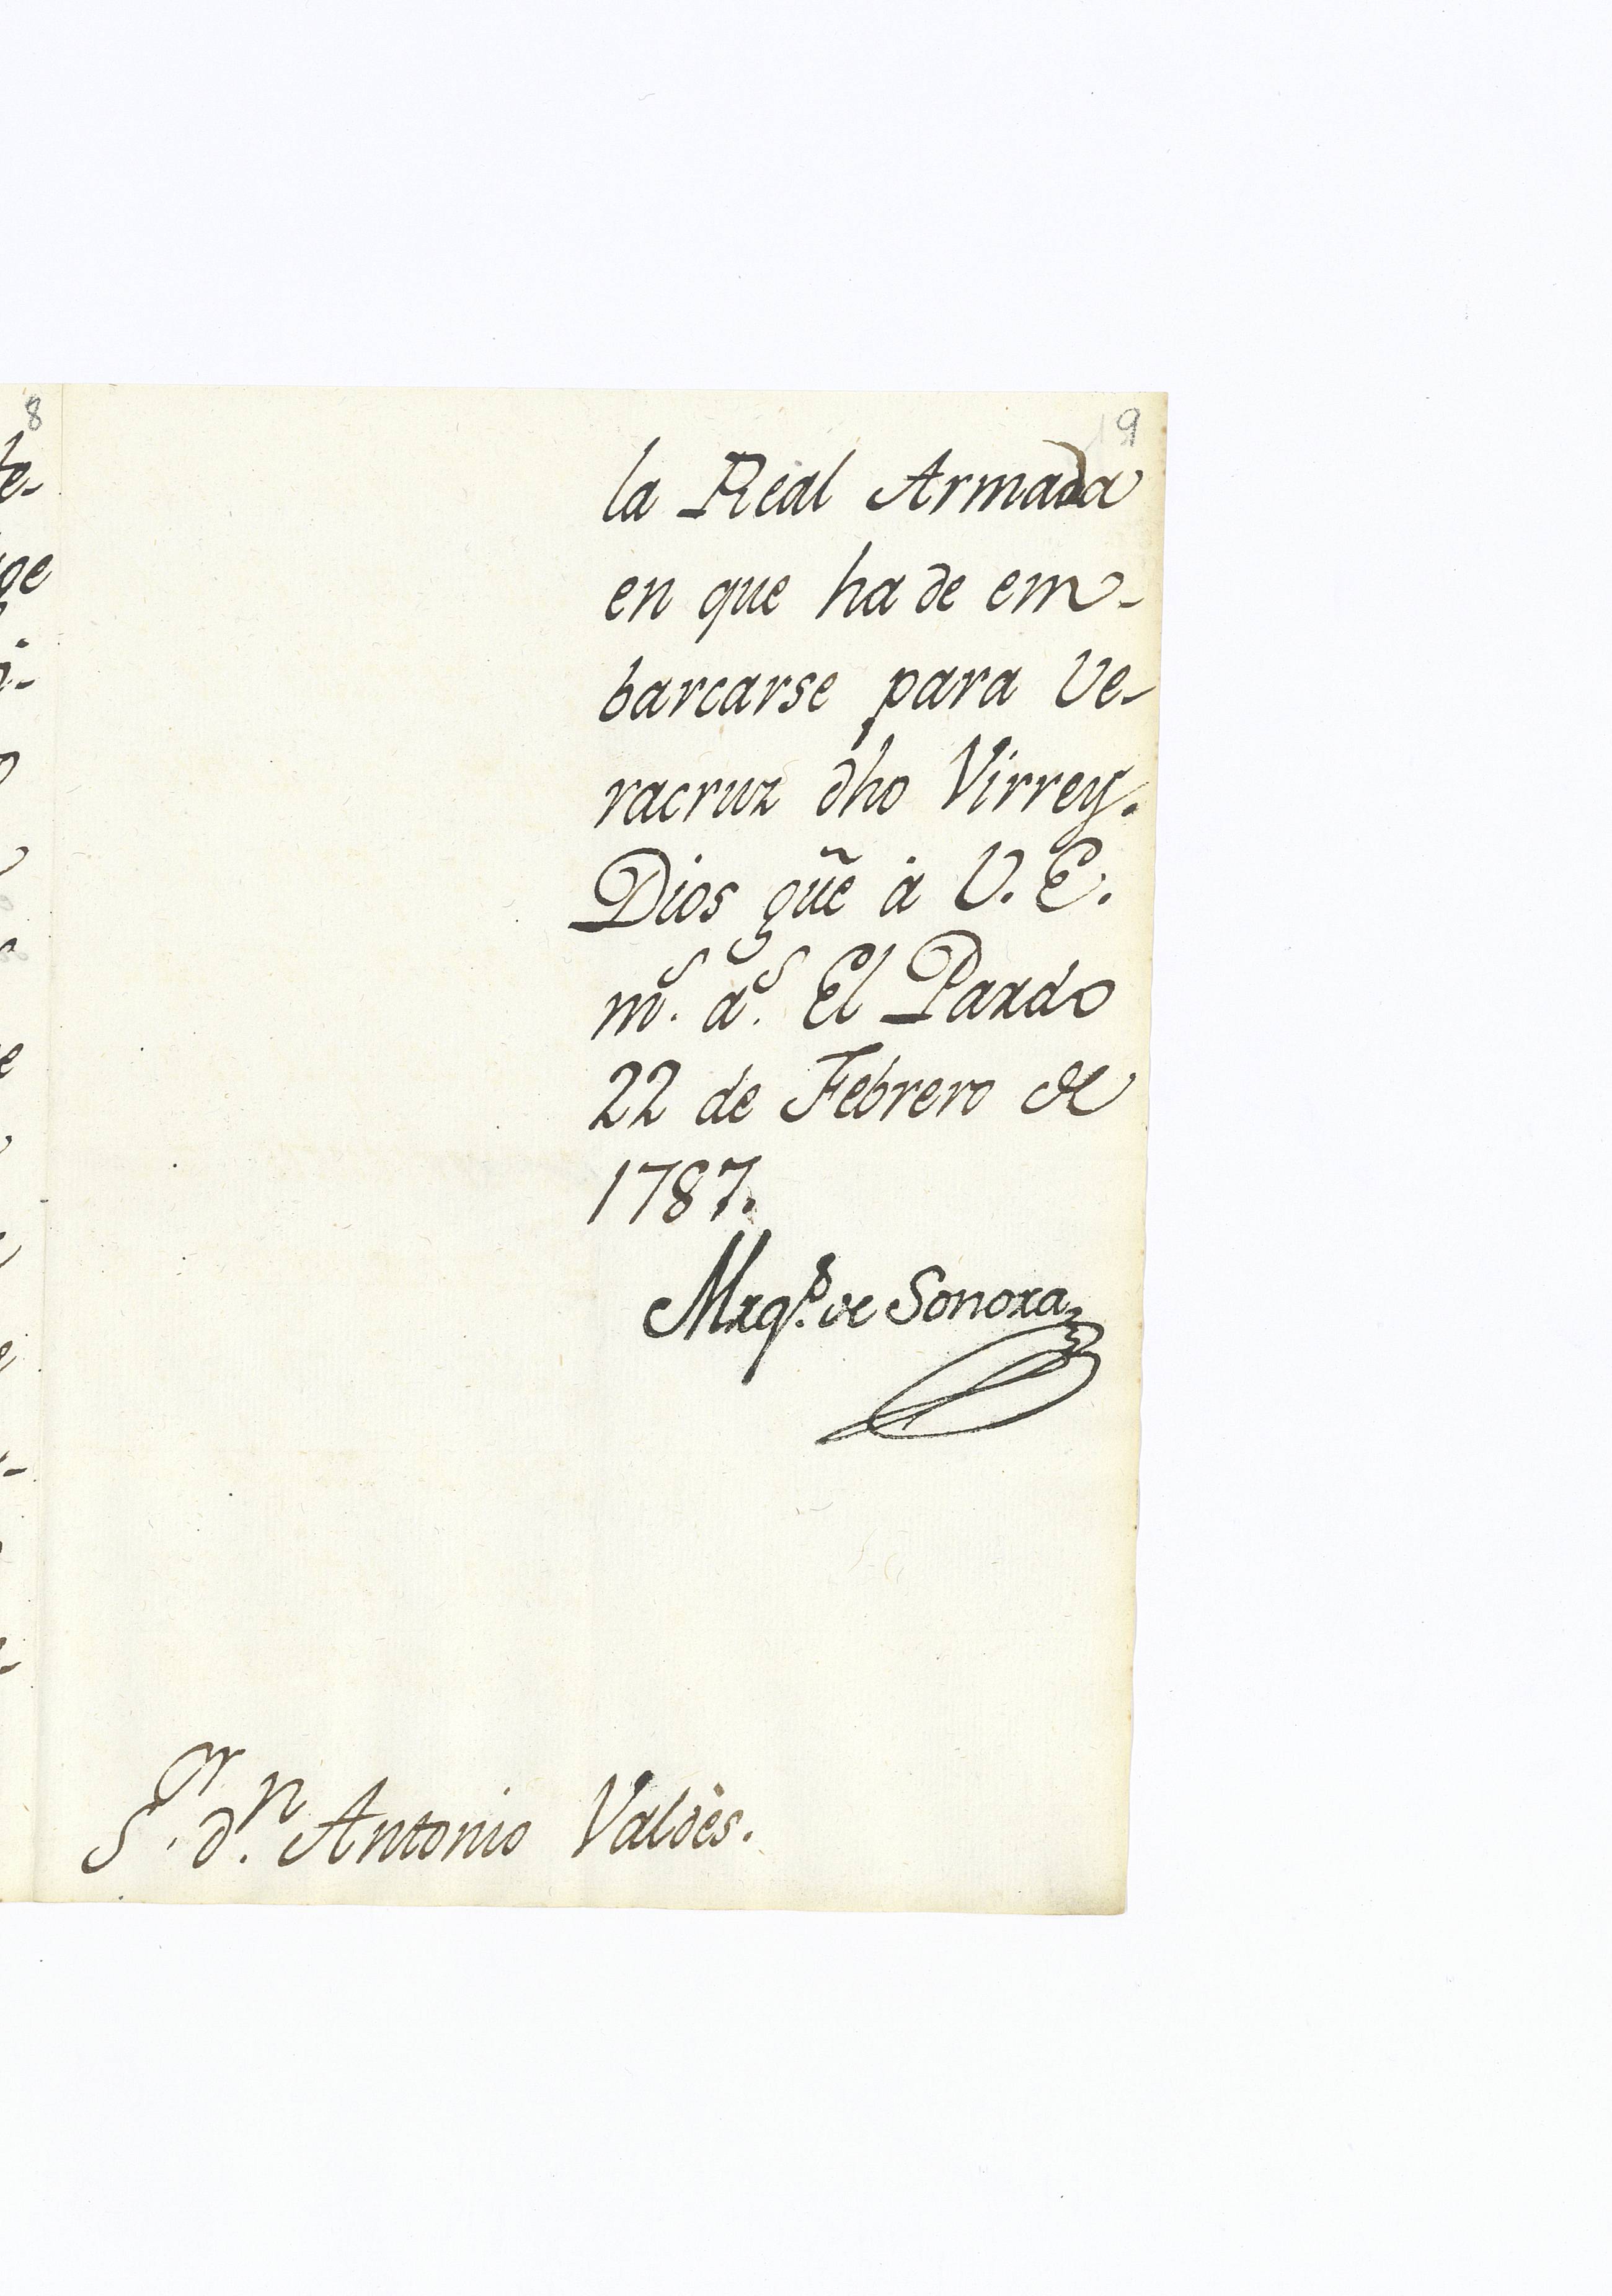 19
la Real Armada
en que ha de em-
barcarse para Ve-
racruz dho Virrey.
Dios güe à V. E.
m.s a.s El Pardo
22 de Febrero de
1787.
Mrq.s de Sonora
S.or d.n Antonio Valdès.